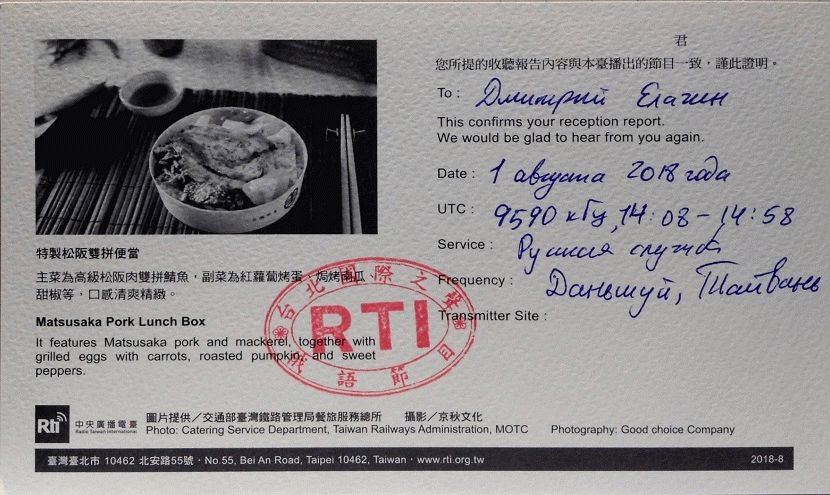 君
您所提的收聽報告內容與本臺播出的節目一致，謹此證明。
To : Дмитрий Елагин
This confirms your reception report.
We would be glad to hear from you again.
Date : 1 августа 2018 года
UTC : 9590 кГц, 14:08-14:58
Service : Русская служба
Frequency : Даньшуй, Тайвань
Transmitter Site :
特製松阪雙拼便當
主菜為高級松阪肉雙拼鯖魚，副菜為紅蘿蔔烤蛋、焗烤南瓜、
甜椒等，口感清爽精緻。
Matsusaka Pork Lunch Box
It features Matsusaka pork and mackerel, together with
grilled eggs with carrots, roasted pumpkin, and sweet
peppers.
台北國際之聲
RTI
俄語節目
Rti 中央廣播電臺
Radio Taiwan International
圖片提供／交通部臺灣鐵路管理局餐旅服務總所 攝影／京秋文化
Photo: Catering Service Department, Taiwan Railways Administration, MOTC Photography: Good choice Company
臺灣臺北市 10462 北安路55號・No.55, Bei An Road, Taipei 10462, Taiwan・www.rti.org.tw 2018-8